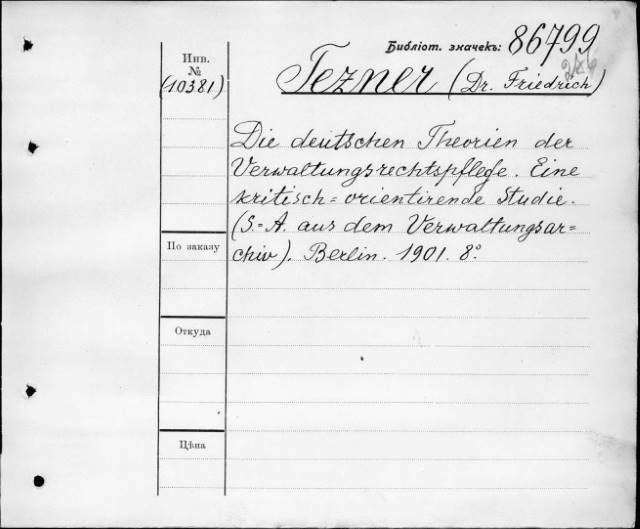 Библіот. значекъ: 86799
Инв.
№
(10381)
Tezner (Dr. Friedrich)
Die deutschen Theorien der
Verwaltungsrechtspflege. Eine
kritisch=orientirende Studie.
(S.=A. aus dem Verwaltungsar=
chiv). Berlin. 1901. 8º
По заказу
Откуда
Цѣна